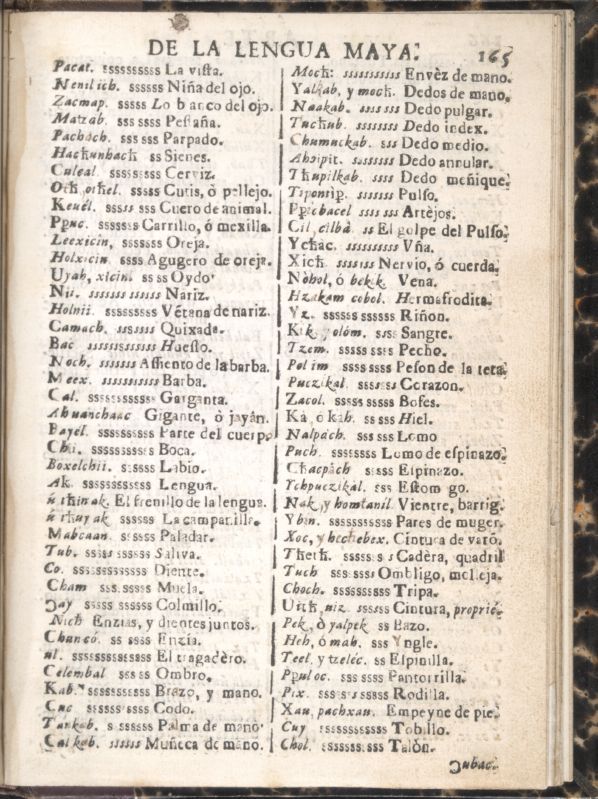 DE LA LENGUA MAYA. 165
Pacat. sssssssss La vista.
Nenilich. ssssss Niña del ojo.
Zacmap. sssss Lo blanco del ojo.
Matzab. sss sss Pestaña.
Pachoch. sss sss Parpado.
Hacħunhacħ ss Sienes.
Culeal ssssssss Cerviz.
Otħ, otħel. sssss Cutis, ò pellejo.
Keuél. sssss sss Cuero de animal.
Ppuc. sssssss Carrillo, ó mexilla.
Leexicin, sssssss Oreja.
Holxicin ssss Agugero de oreja.
Uyah, xicin. ss ss Oydo
Nii. sssssss ssssss Nariz.
Holnii. ssssssss Vétana de nariz.
Camach. sssssss Quixada.
Bac ssssssssssss Huesso.
Noch. sssssss Assiento de la barba.
Meex. ssssssssss Barba.
Cal. ssssssssss Garganta.
Ahuanchaac Gigante, ò jayân.
Bayél. ssssssssss Parte del cuerpo
Chii. ssssssssss Boca.
Boxelchii. ssssss Labio.
Ak. sssss ssssss Lengua.
El frenillo de la lengua.
ssssss La campanilla.
Mabcaan. ssssss Paladar.
Tub. sssss ssssss Saliva.
Co. ssssssssssss Diente.
Cham sss.sssss Muela.
Ɔay sssss ssssss Colmillo.
Nich Enzias, y dientes juntos.
Chuncó. ss ssss Enzia.
ul. sssssssssssss El tragadèro.
Celembal sss ss Ombro.
Kab. sssssssssss Brazo, y mano.
Cuc ssssss ssss Codo.
Tankab. s ssssss Palma de mano
Cal kab. ssssss Muñeca de mano.
Mocħ: sssssssssss Envèz de mano.
y mocħ. Dedos de mano.
Naakab. ssss sss Dedo pulgar.
Tucħub. ssssssss Dedo index.
Chumuckab. sss Dedo medio.
ssssssss Dedo annular.
Tħupilkab. ssss Dedo meñique.
Tiponțip. sssssss Pulso.
Ppicbacel ssss sss Artèjos.
Cil, cilbà ss El golpe del Pulso.
Ycħac. sssssssss Vña.
Xicħ sssssss Nervio, ó cuerda.
Nohol, ó bekik. Vena.
Hzakam cobol. Hermafrodita.
Yz. ssssss ssssss Riñon.
Kik, y olóm. ssss Sangre.
Tzem. sssss sss Pecho.
Pol im ssss ssss Peson de la teta.
Puczikal. sssssss Corazon.
Zacol. sssss ssss Bofes.
Ka, o kah. ss sss Hiel.
Nalpách. sss sss Lomo
Puch. ssssssss Lomo de espinazo.
Chacpách ssss Espinazo.
Ychpuczikál. sss Estomago.
Nak, y homtanil. Vientre, barrig.
Ybin. ssssssssss Pares de muger.
Xoc, y hcchebex. Cintura de varõ.
Tħetħ. sssss s s Cadèra, quadril
Tuch sssssssss Ombligo, molleja.
Choch. sssssssss Tripa.
niz. ssssss Cintura, proprié.
Pek, ò yalpek ss Bazo.
Heh, ó mah. sss Yngle.
Teel, y tzeléc. ss Espinilla.
Ppuloc. sss ssss Pantorrilla.
Pix. sss s s sssss Rodilla.
Xau, pachxau. Empeyne de pie.
Cuy sssssssssss Tobillo.
Chol. sssssss.sss Talón.
Ɔubac.